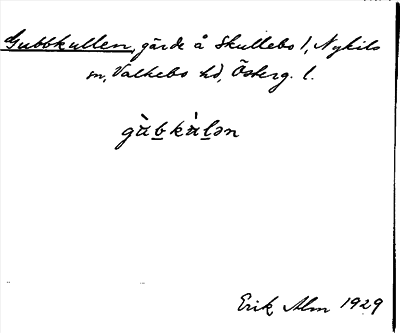 Gubbkullen, gärde å Skullebo 1, Nykils
sn, Valkebo hd, Österg. l.
Erik Alm 1929